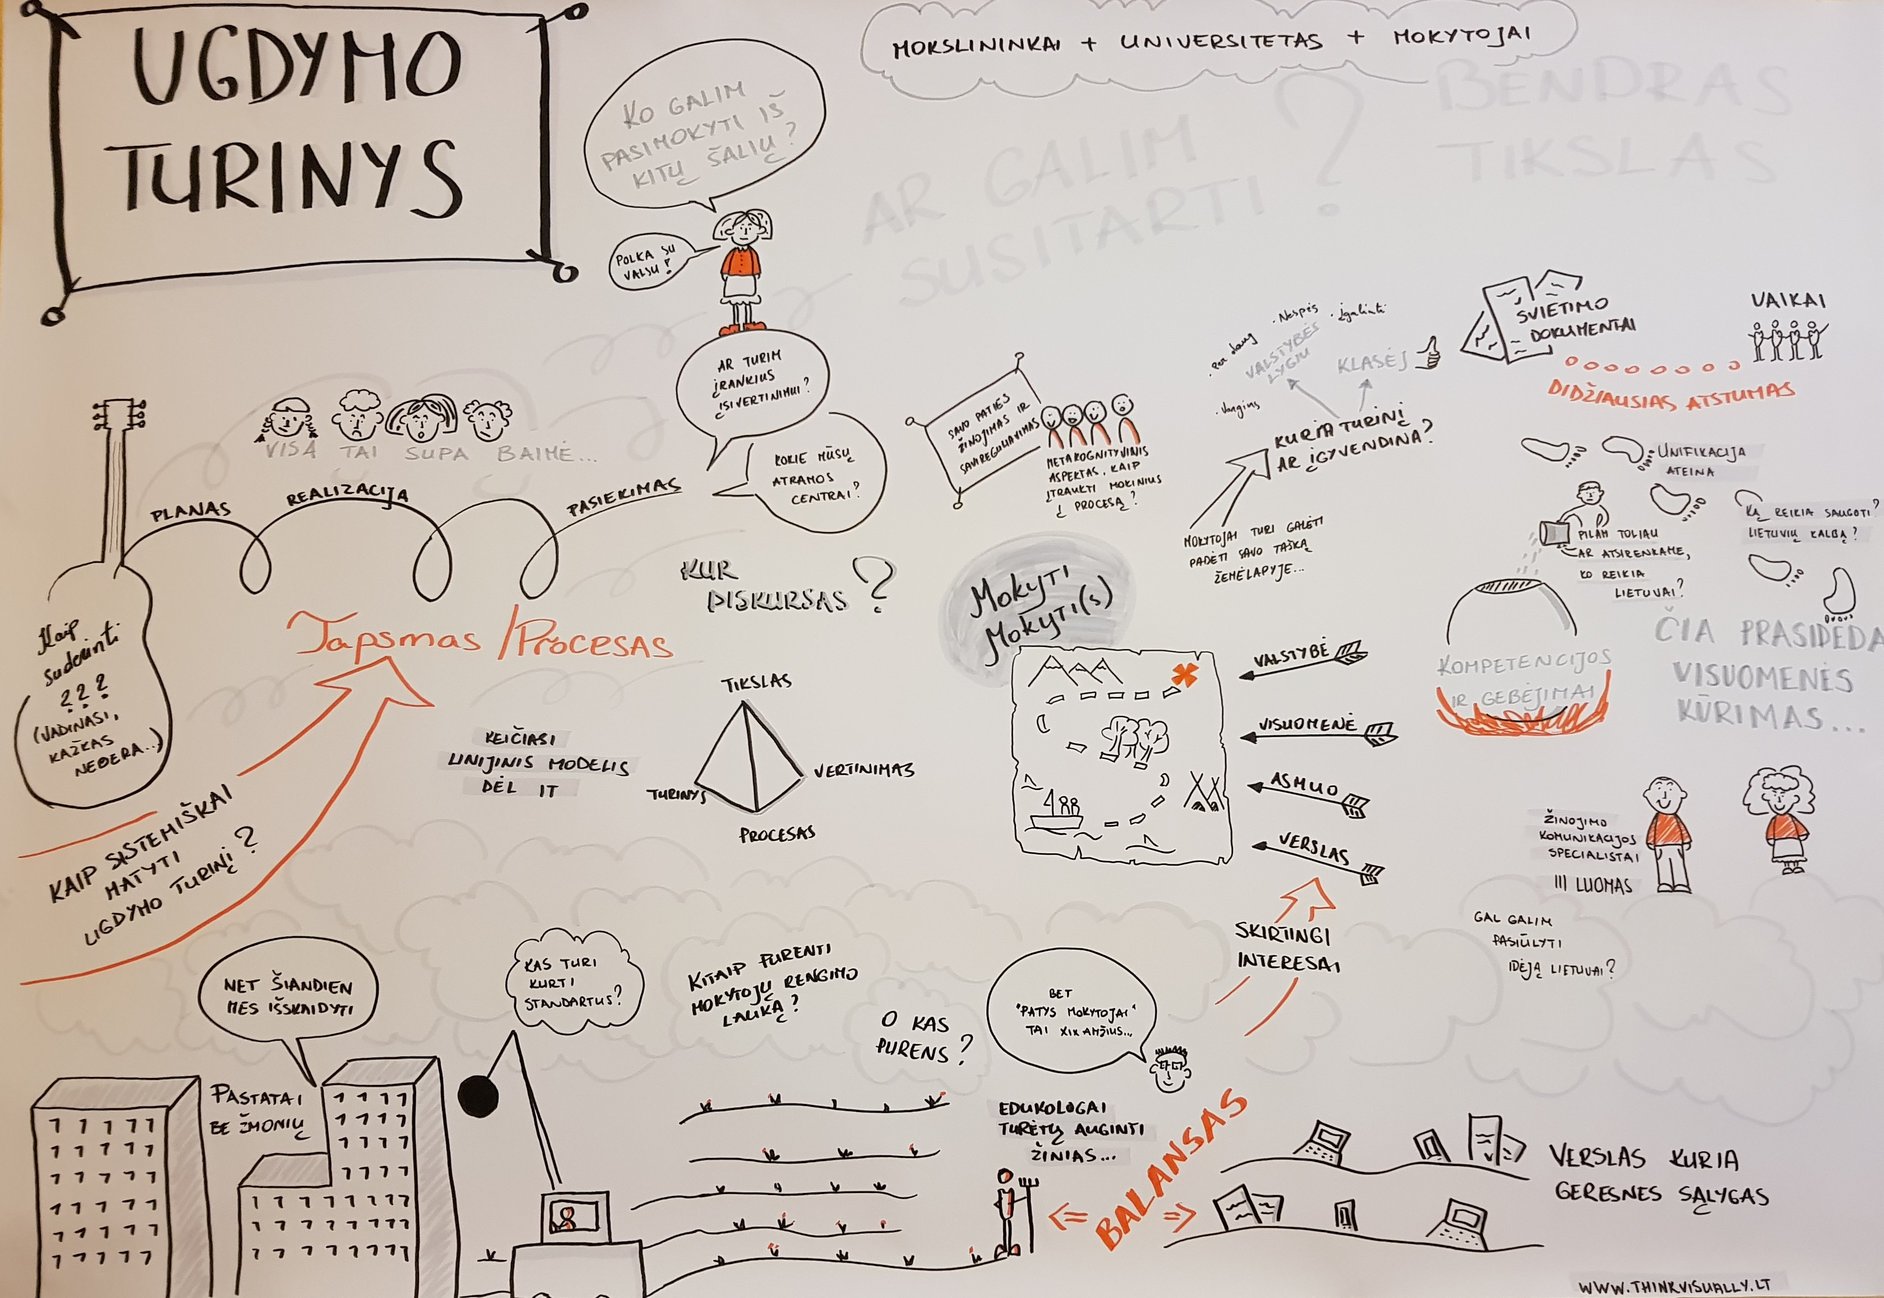 UGDYMO
TURINYS
KO GALIM
PASIMOKYTI IŠ
KITŲ ŠALIŲ?
POLKA SU
VALSU!
MOKSLININKAI + UNIVERSITETAS + MOKYTOJAI
AR GALIM
SUSITARTI?
BENDRAS
TIKSLAS
AR TURIM
ĮRANKIUS
ĮSIVERTINIMUI?
KOKIE MŪSŲ
ATRAMOS
CENTRAI?
VISA TAI SUPA BAIMĖ...
PLANAS
REALIZACIJA
PASIEKIMAS
Kaip
suderinti
???
(VADINASI,
KAŽKAS
NEDERA...)
Tapsmas / Procesas
KAIP SISTEMIŠKAI
MATYTI
UGDYMO TURINĮ?
KUR
DISKURSAS?
KEIČIASI
LINIJINIS MODELIS
DĖL IT
TIKSLAS
TURINYS
VERTINIMAS
PROCESAS
SAVO PATIES
ŽINOJIMAS IR
SAVIREGULIAVIMAS
METAKOGNITYVINIS
ASPEKTAS, KAIP
ĮTRAUKTI MOKINIUS
Į PROCESĄ?
· Per daug
· Nespės
· Įgalinti
· Vangus
VALSTYBĖS
LYGIU
KLASĖJ
KURIA TURINĮ
AR ĮGYVENDINA?
MOKYTOJAI TURI GALĖTI
PADĖTI SAVO TAŠKĄ
ŽEMĖLAPYJE...
ŠVIETIMO
DOKUMENTAI
VAIKAI
DIDŽIAUSIAS ATSTUMAS
UNIFIKACIJA
ATEINA
KĄ REIKIA SAUGOTI?
LIETUVIŲ KALBĄ?
PILAM TOLIAU
AR ATSIRENKAME,
KO REIKIA
LIETUVAI?
KOMPETENCIJOS
IR GEBĖJIMAI
ČIA PRASIDEDA
VISUOMENĖS
KŪRIMAS...
MOKYTI
MOKYTI(S)
VALSTYBĖ
VISUOMENĖ
ASMUO
VERSLAS
SKIRTINGI
INTERESAI
ŽINOJIMO
KOMUNIKACIJOS
SPECIALISTAI
III LUOMAS
GAL GALIM
PASIŪLYTI
IDĖJĄ LIETUVAI?
NET ŠIANDIEN
MES IŠSKAIDYTI
PASTATAI
BE ŽMONIŲ
KAS TURI
KURTI
STANDARTUS?
KITAIP PURENTI
MOKYTOJŲ RENGIMO
LAUKĄ?
O KAS
PURENS?
BET
"PATYS MOKYTOJAI"
TAI XIX AMŽIUS...
EDUKOLOGAI
TURĖTŲ AUGINTI
ŽINIAS...
BALANSAS
VERSLAS KURIA
GERESNES SĄLYGAS
WWW.THINKVISUALLY.LT